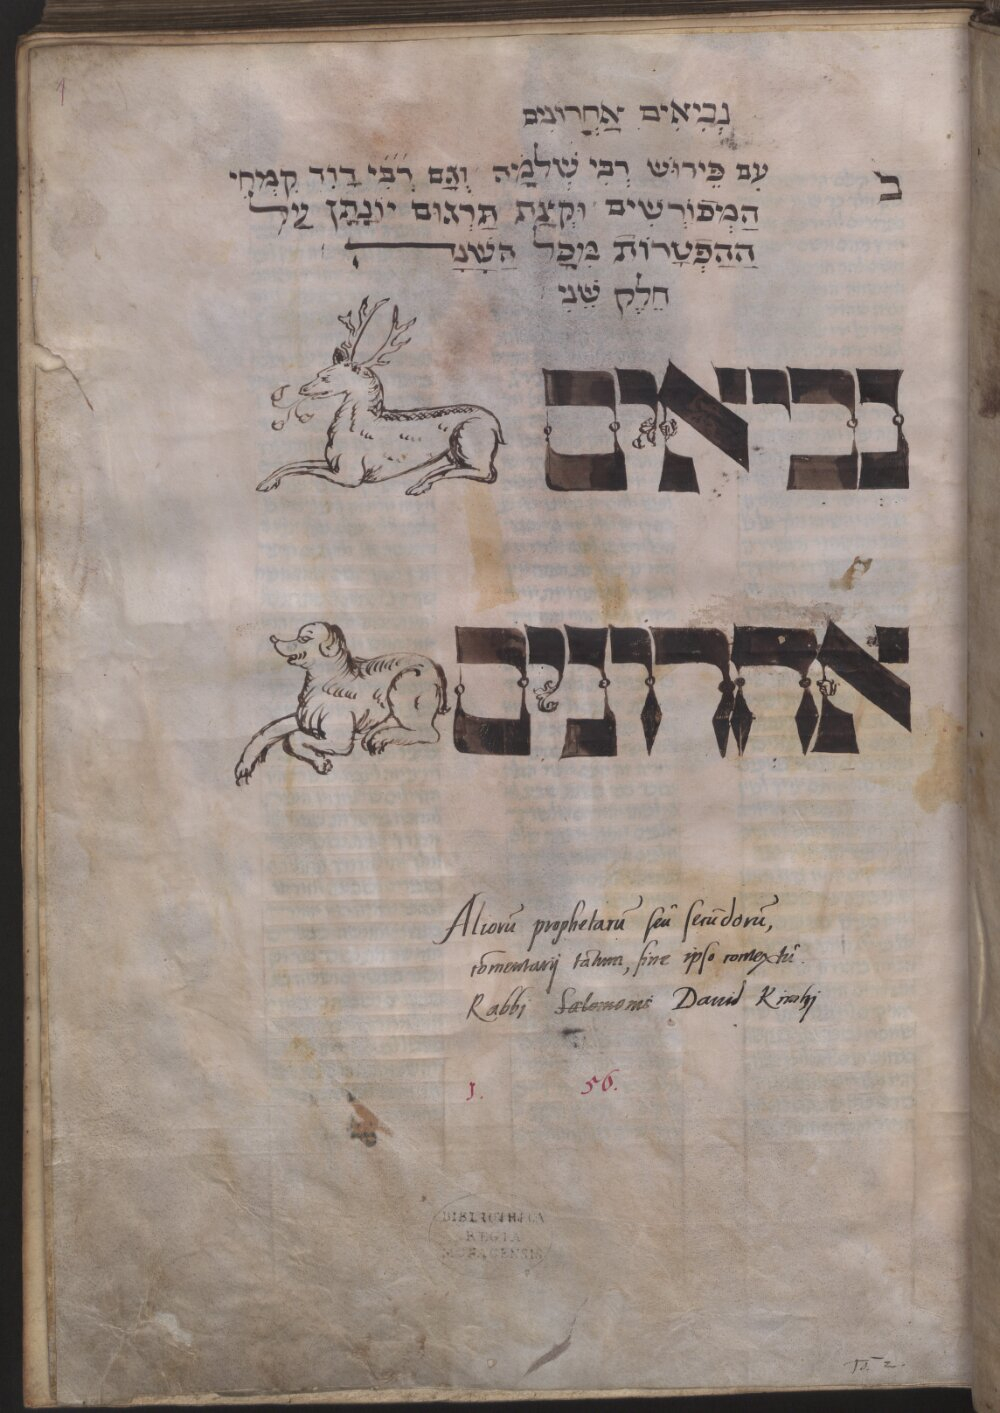 נְבִיאִים אַחֲרוֹנִים
עִם פֵּירוּשׁ רַבִּי שְׁלֹמֹה וְגַם רַבִּי דָוִד קִמְחִי
ב
הַמְפוֹרָשִׁים וּקְצָת תַּרְגּוּם יוֹנָתָן עַל
הַהַפְטָרוֹת מִכָּל הַשָּׁנָה
חֵלֶק שֵׁנִי
נביאים
אחרונים
Aliorū prophetarū seu secūdorū,
cōmentarij tātum, sine ipso contextu.
Rabbi Salomonis David Kimhj
1. 56.
BIBLIOTHECA
REGIA
MONACENSIS